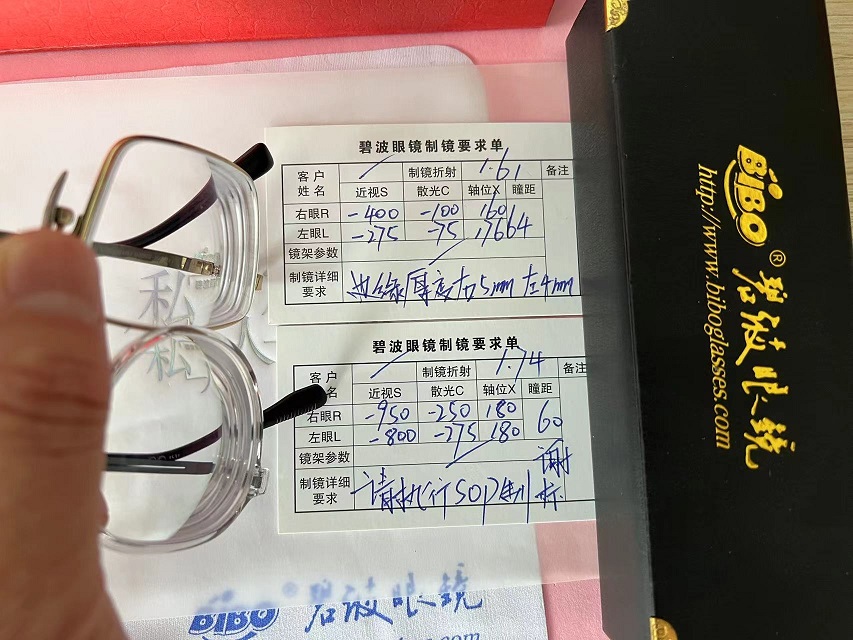 碧波眼镜制镜要求单
客户姓名 制镜折射 1.61 备注
近视S 散光C 轴位X 瞳距
右眼R -400 -100 160 64
左眼L -275 -75 176
镜架参数
制镜详细要求 边缘厚度右5mm 左4mm
碧波眼镜制镜要求单
客户 名 制镜折射 1.74 备注
近视S 散光C 轴位X 瞳距
右眼R -950 -250 180 60
左眼L -800 -275 180
镜架参数
制镜详细要求 请执行SOP制
BiBO® 碧波眼镜
http://www.biboglasses.com
私人
私
BiBO® 碧波眼镜
.com